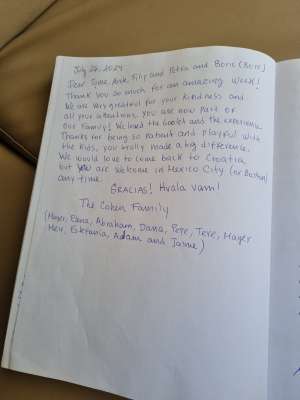 July 27, 2024
Dear Šime, Ante, Filip and Petra and Boris (Bore)
Thank you so much for an amazing week!
We are very greatful for your kindness and
all your attentions. You are now part of
our family! We loved the Goolet and the experience
Thanks for being so patient and playful with
the kids, you really made a big difference.
We would love to come back to Croatia
but you are welcome in Mexico City (or Boston)
any time.
GRACIAS! Hvala vam!
The Cohen Family
(Mayer, Elena, Abraham, Dana, Pepe, Tere, Mayer
Meir, Estefania, Adam and Jaime)